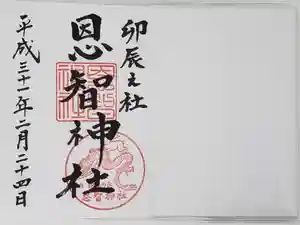 卯辰之社
恩智神社
平成三十一年二月二十四日
恩智神社